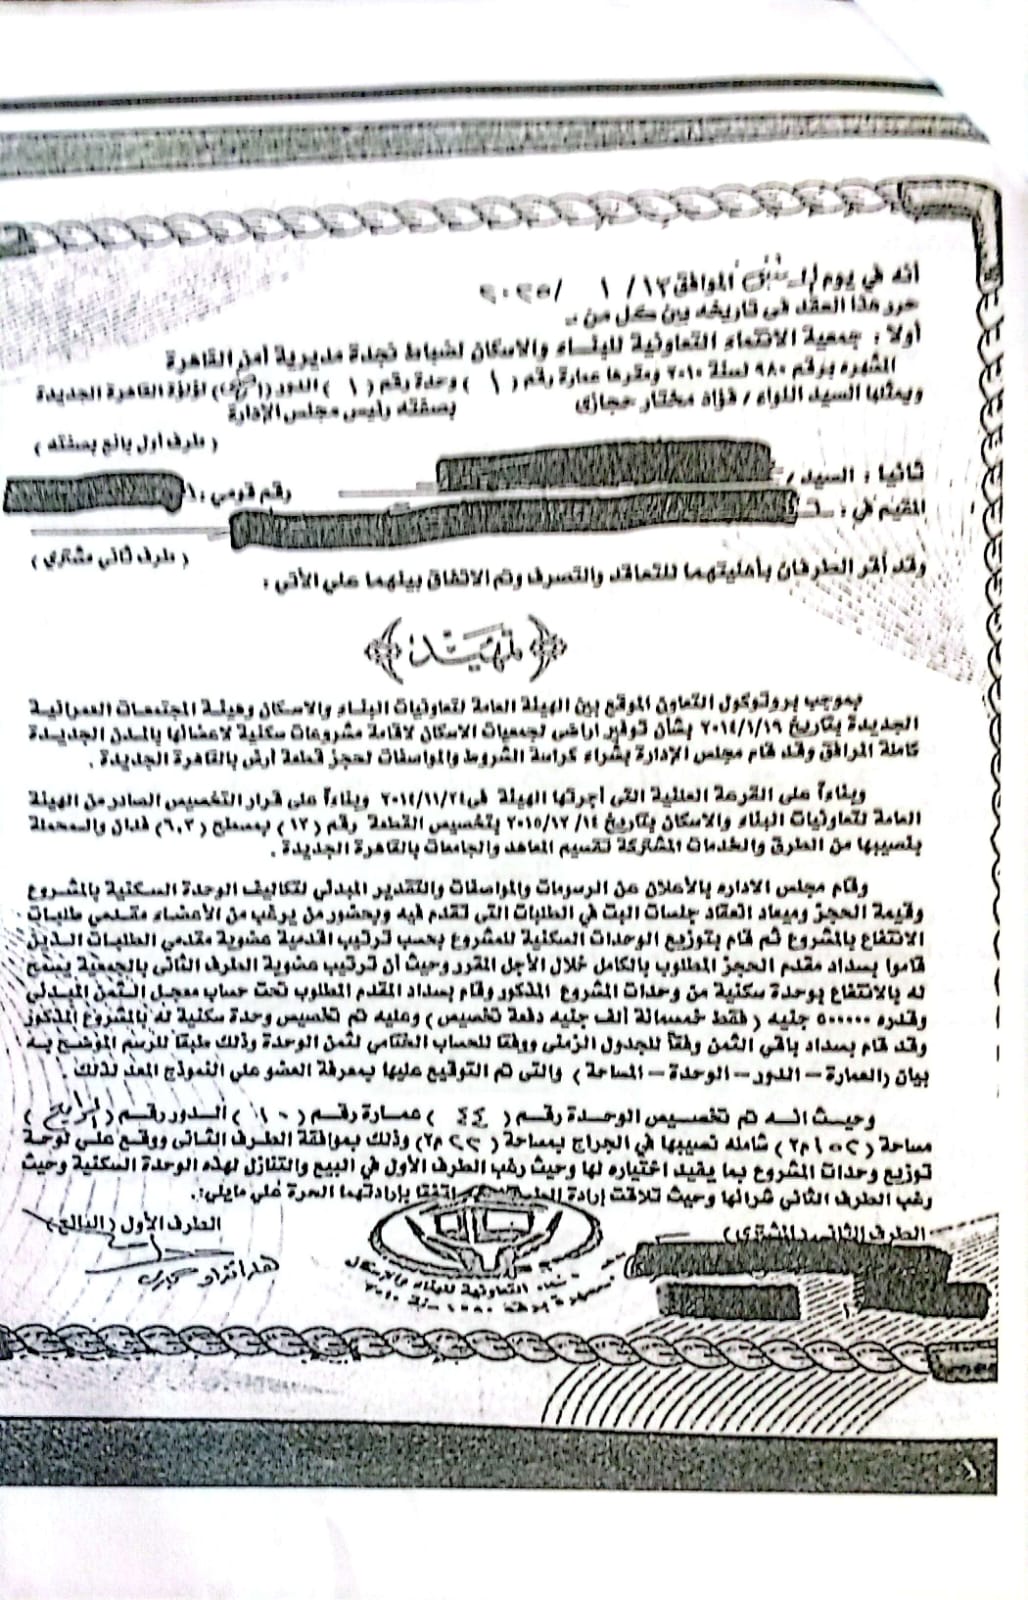 أنه في يوم الموافق ١٣/ ١ /٢٠٢٥
حرر هذا العقد في تاريخه بين كل من :-
أولا : جمعية الانتماء التعاونية للبناء والاسكان لضباط نجدة مديرية أمن القاهرة
المشهره برقم ٩٨٠ لسنة ٢٠١٠ ومقرها عمارة رقم ( ١ ) وحدة رقم ( ١ ) الدور ( ) لؤلؤة القاهرة الجديدة
ويمثلها السيد اللواء / فؤاد مختار حجازى بصفته رئيس مجلس الإدارة
( طرف أول بائع بصفته )
ثانيا : السيد /
رقم قومي :
المقيم في :
( طرف ثانى مشترى )
وقد أقر الطرفان بأهليتهما للتعاقد والتصرف وتم الاتفاق بينهما على الأتي :
تمهيد
بموجب بروتوكول التعاون الموقع بين الهيئة العامة لتعاونيات البناء والاسكان وهيئة المجتمعات العمرانية
الجديدة بتاريخ ٢٠١٤/١/١٩ بشأن توفير اراضى لجمعيات الاسكان لاقامة مشروعات سكنية لاعضائها بالمدن الجديدة
كاملة المرافق وقد قام مجلس الإدارة بشراء كراسة الشروط والمواصفات لحجز قطعة أرض بالقاهرة الجديدة .
وبناءاً على القرعة العلنية التى أجرتها الهيئة فى ٢٠١٤/١١/٢٤ وبناءاً على قرار التخصيص الصادر من الهيئة
العامة لتعاونيات البناء والاسكان بتاريخ ٢٠١٥/١٢/١٤ بتخصيص القطعة رقم (١٢) بمسطح (٦,٣) فدان والمحملة
بنصيبها من الطرق والخدمات المشتركة تقسيم المعاهد والجامعات بالقاهرة الجديدة .
وقام مجلس الاداره بالأعلان عن الرسومات والمواصفات والتقدير المبدئي لتكاليف الوحدة السكنية بالمشروع
وقيمة الحجز وميعاد انعقاد جلسات البت في الطلبات التى تقدم فيه وبحضور من يرغب من الأعضاء مقدمي طلبات
الانتفاع بالمشروع ثم قام بتوزيع الوحدات السكنية للمشروع بحسب ترتيب اقدمية عضوية مقدمي الطلبات الذين
قاموا بسداد مقدم الحجز المطلوب بالكامل خلال الأجل المقرر وحيث أن ترتيب عضوية الطرف الثانى بالجمعية يسمح
له بالانتفاع بوحدة سكنية من وحدات المشروع المذكور وقام بسداد المقدم المطلوب تحت حساب معجل الثمن المبدئي
وقدره ٥٠٠٠٠٠ جنيه ( فقط خمسمائة ألف جنيه دفعة تخصيص ) وعليه تم تخصيص وحدة سكنية له بالمشروع المذكور
وقد قام بسداد باقي الثمن وفقاً للجدول الزمنى ووفقا للحساب الختامى لثمن الوحدة وذلك طبقا للرسم الموضح به
بيان (العمارة – الدور – الوحدة – المساحة ) والتى تم التوقيع عليها بمعرفة العضو على النموذج المعد لذلك .
وحيث انه تم تخصيص الوحدة رقم ( ٤٤ ) عمارة رقم ( ١٠ ) الدور رقم ( الرابع )
مساحة ( م٢) شامله نصيبها في الجراج بمساحة (٢٢ م٢) وذلك بموافقة الطرف الثانى ووقع على لوحة
توزيع وحدات المشروع بما يفيد اختياره لها وحيث رغب الطرف الأول في البيع والتنازل لهذه الوحدة السكنية وحيث
رغب الطرف الثانى شرائها وحيث تلاقت إرادة اتفقا بإرادتهما الحرة على مايلى :.
الطرف الثانى (المشترى) الطرف الأول (البائع)
التعاونية للبناء والإسكان
١